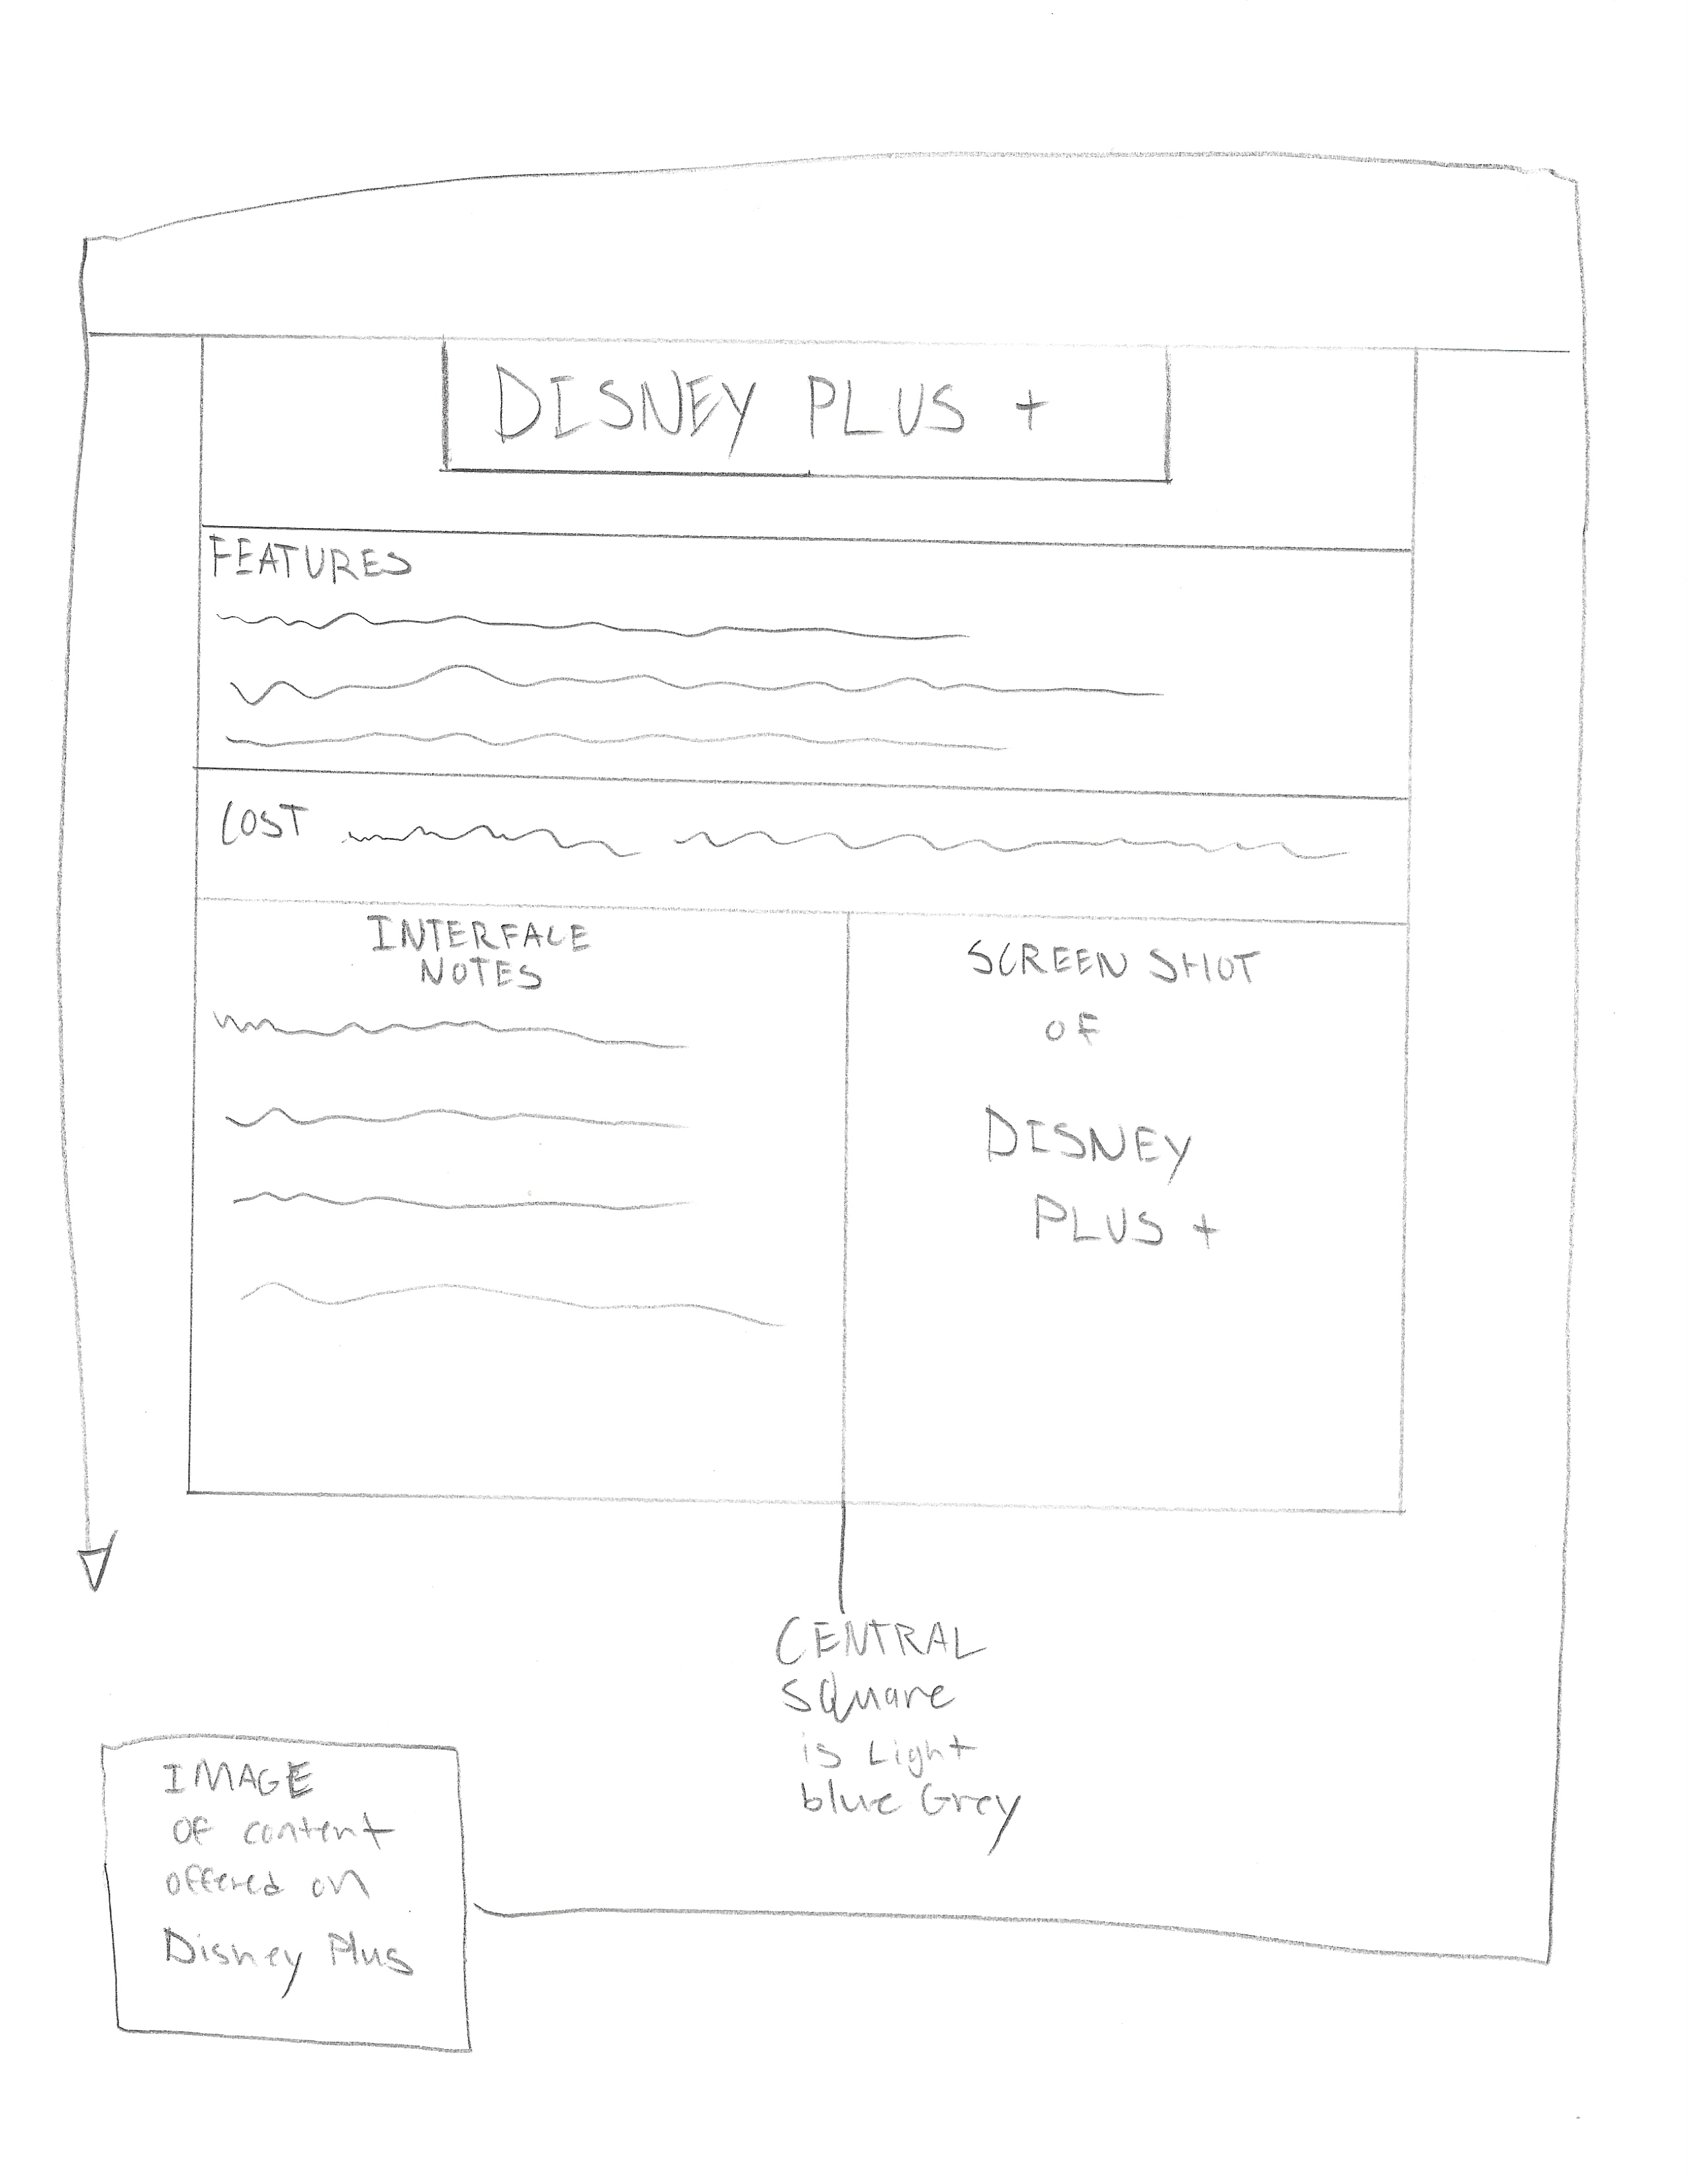 DISNEY PLUS +
FEATURES
COST
INTERFACE
NOTES
SCREEN SHOT
OF
DISNEY
PLUS +
CENTRAL
square
is Light
blue Grey
IMAGE
OF content
offered on
Disney Plus